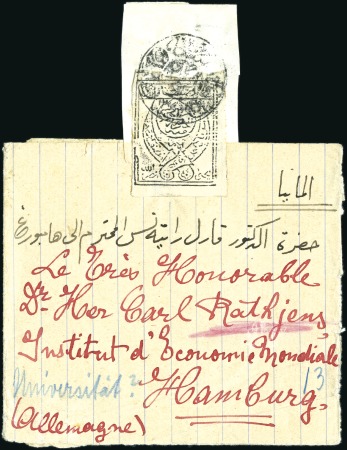 المانيا
حضرة الدكتور قارل راتينس المحترم الى هامبورغ
Le Très Honorable
Dr. Her Carl Rathjens,
Institut d'Economie Mondiale
Universität? Hamburg, 13
(Allemagne)